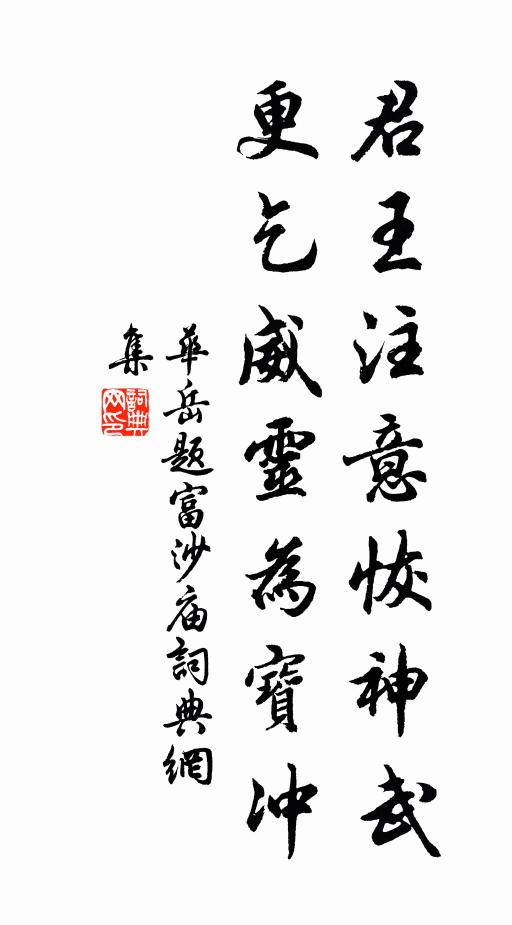 君王注意恢神武
更乞威靈為寶沖
華岳題富沙庙詞典網
集
詞典
网印